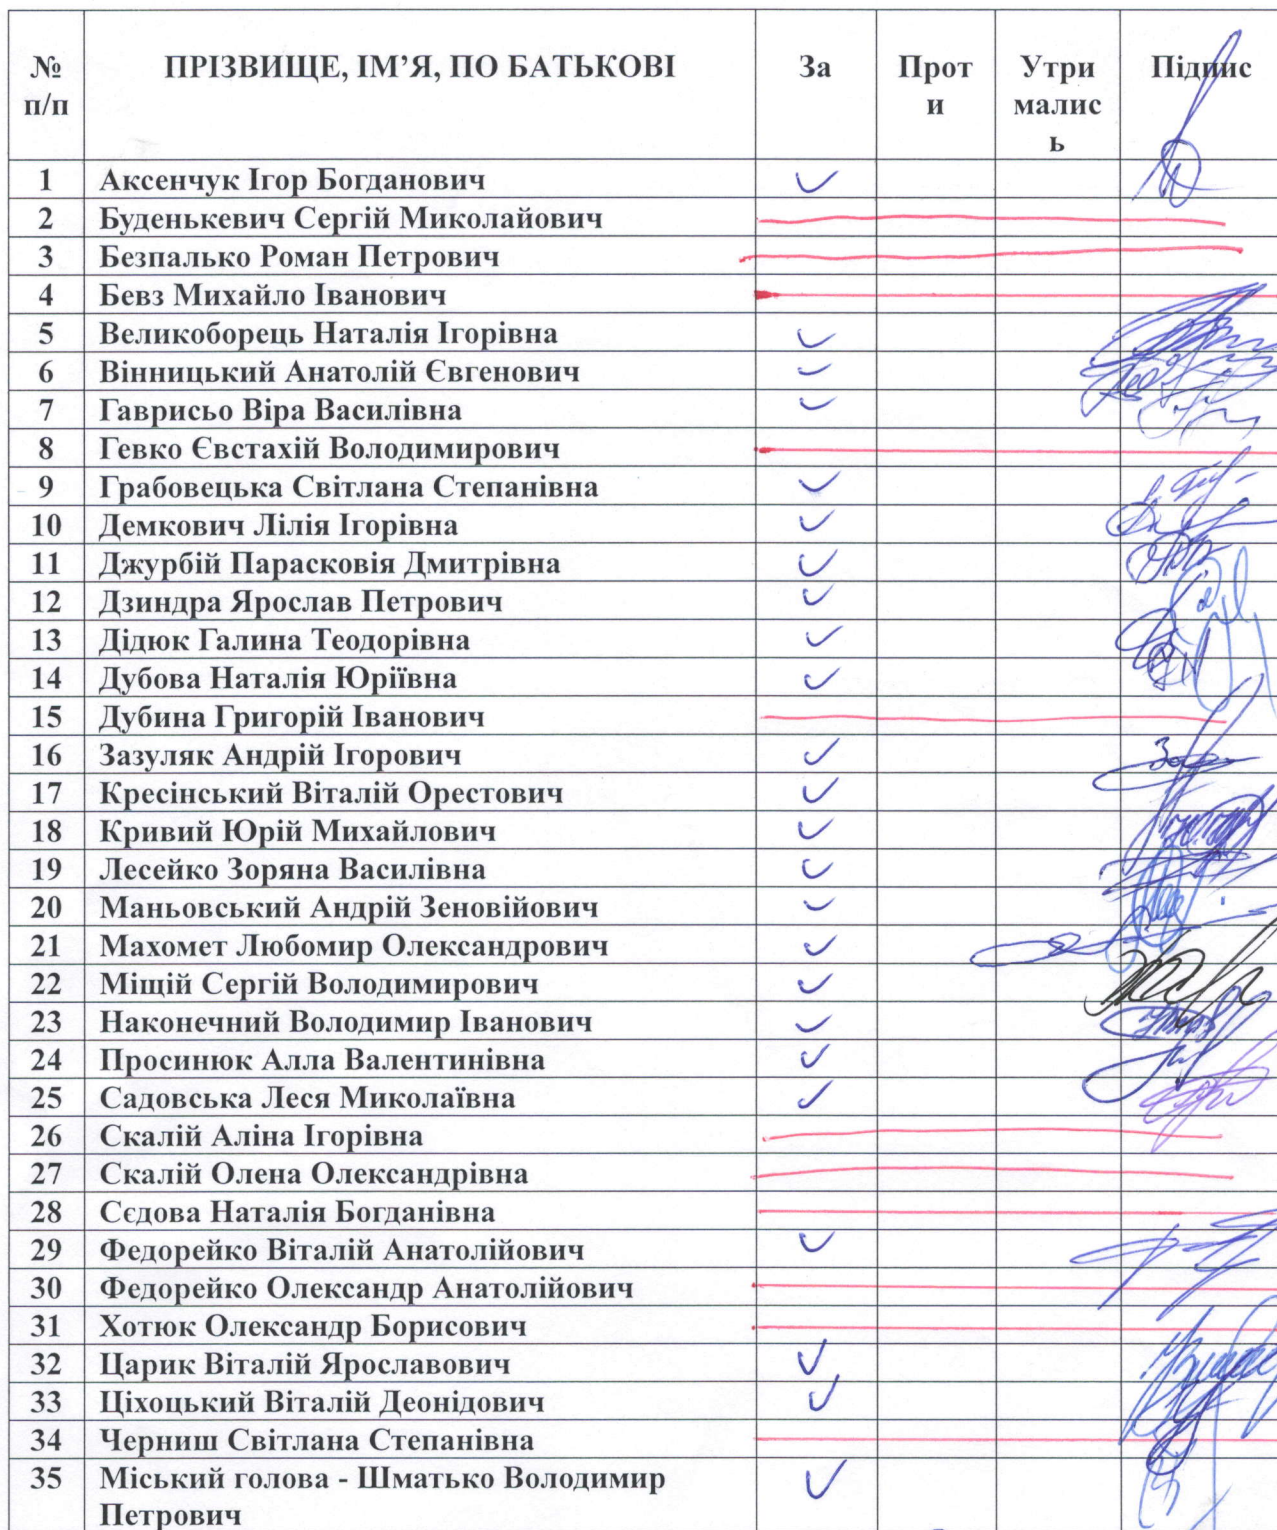 № п/п ПРІЗВИЩЕ, ІМ’Я, ПО БАТЬКОВІ За Прот и Утри малис ь Підпис
1 Аксенчук Ігор Богданович ✓
2 Буденькевич Сергій Миколайович
3 Безпалько Роман Петрович
4 Бевз Михайло Іванович
5 Великоборець Наталія Ігорівна ✓
6 Вінницький Анатолій Євгенович ✓
7 Гаврисьо Віра Василівна ✓
8 Гевко Євстахій Володимирович
9 Грабовецька Світлана Степанівна ✓
10 Демкович Лілія Ігорівна ✓
11 Джурбій Парасковія Дмитрівна ✓
12 Дзиндра Ярослав Петрович ✓
13 Дідюк Галина Теодорівна ✓
14 Дубова Наталія Юріївна ✓
15 Дубина Григорій Іванович
16 Зазуляк Андрій Ігорович ✓
17 Кресінський Віталій Орестович ✓
18 Кривий Юрій Михайлович ✓
19 Лесейко Зоряна Василівна ✓
20 Маньовський Андрій Зеновійович ✓
21 Махомет Любомир Олександрович ✓
22 Міщій Сергій Володимирович ✓
23 Наконечний Володимир Іванович ✓
24 Просинюк Алла Валентинівна ✓
25 Садовська Леся Миколаївна ✓
26 Скалій Аліна Ігорівна
27 Скалій Олена Олександрівна
28 Сєдова Наталія Богданівна
29 Федорейко Віталій Анатолійович ✓
30 Федорейко Олександр Анатолійович
31 Хотюк Олександр Борисович
32 Царик Віталій Ярославович ✓
33 Ціхоцький Віталій Деонідович ✓
34 Черниш Світлана Степанівна
35 Міський голова - Шматько Володимир ✓
Петрович